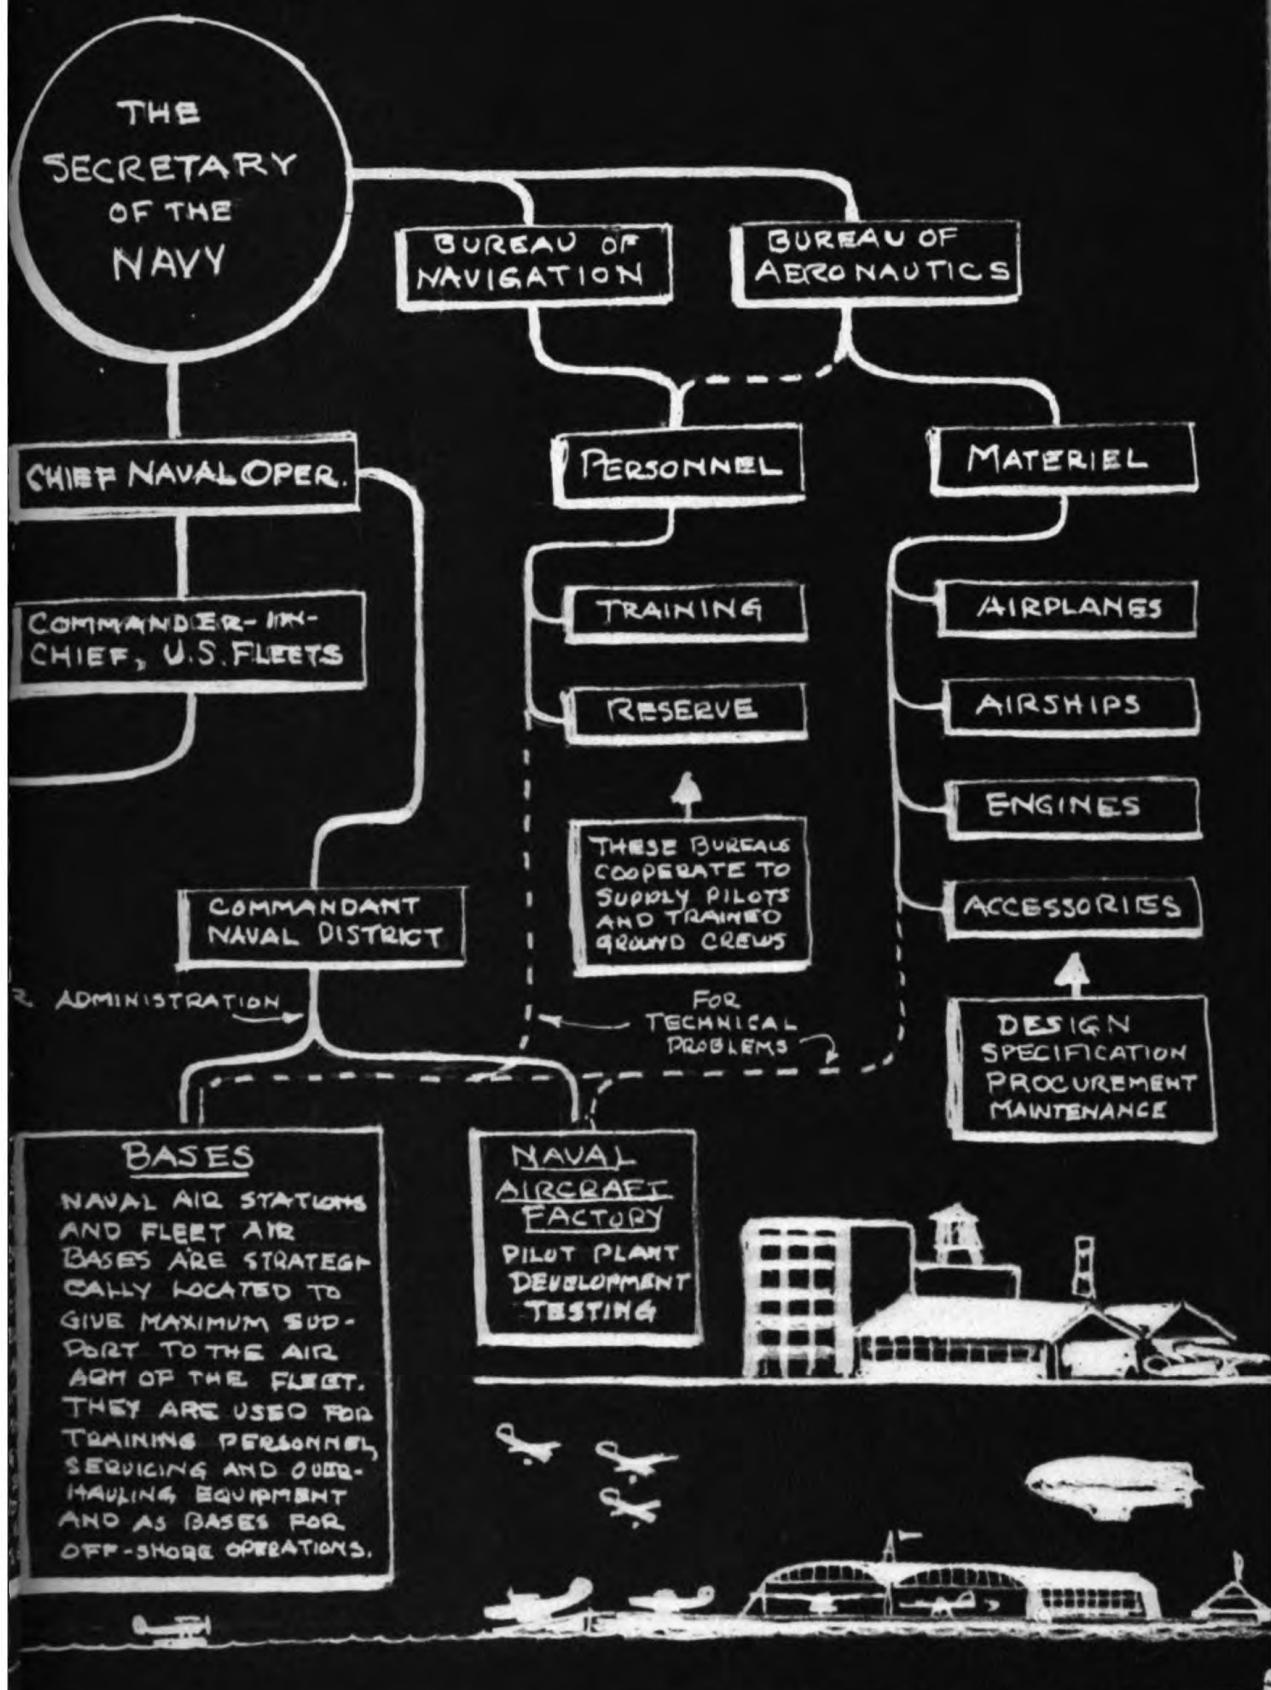 THE
SECRETARY
OF THE
NAVY
BUREAU OF
NAVIGATION
BUREAU OF
AERONAUTICS
CHIEF NAVAL OPER.
PERSONNEL
MATERIEL
COMMANDER-IN-
CHIEF, U.S. FLEETS
TRAINING
RESERVE
AIRPLANES
AIRSHIPS
ENGINES
ACCESSORIES
THESE BUREAUS
COOPERATE TO
SUPPLY PILOTS
AND TRAINED
GROUND CREWS
COMMANDANT
NAVAL DISTRICT
R ADMINISTRATION
FOR
TECHNICAL
PROBLEMS
DESIGN
SPECIFICATION
PROCUREMENT
MAINTENANCE
BASES
NAVAL AIR STATIONS
AND FLEET AIR
BASES ARE STRATEGI-
CALLY LOCATED TO
GIVE MAXIMUM SUP-
PORT TO THE AIR
ARM OF THE FLEET.
THEY ARE USED FOR
TRAINING PERSONNEL,
SERVICING AND OVER-
HAULING EQUIPMENT
AND AS BASES FOR
OFF-SHORE OPERATIONS.
NAVAL
AIRCRAFT
FACTORY
PILOT PLANT
DEVELOPMENT
TESTING